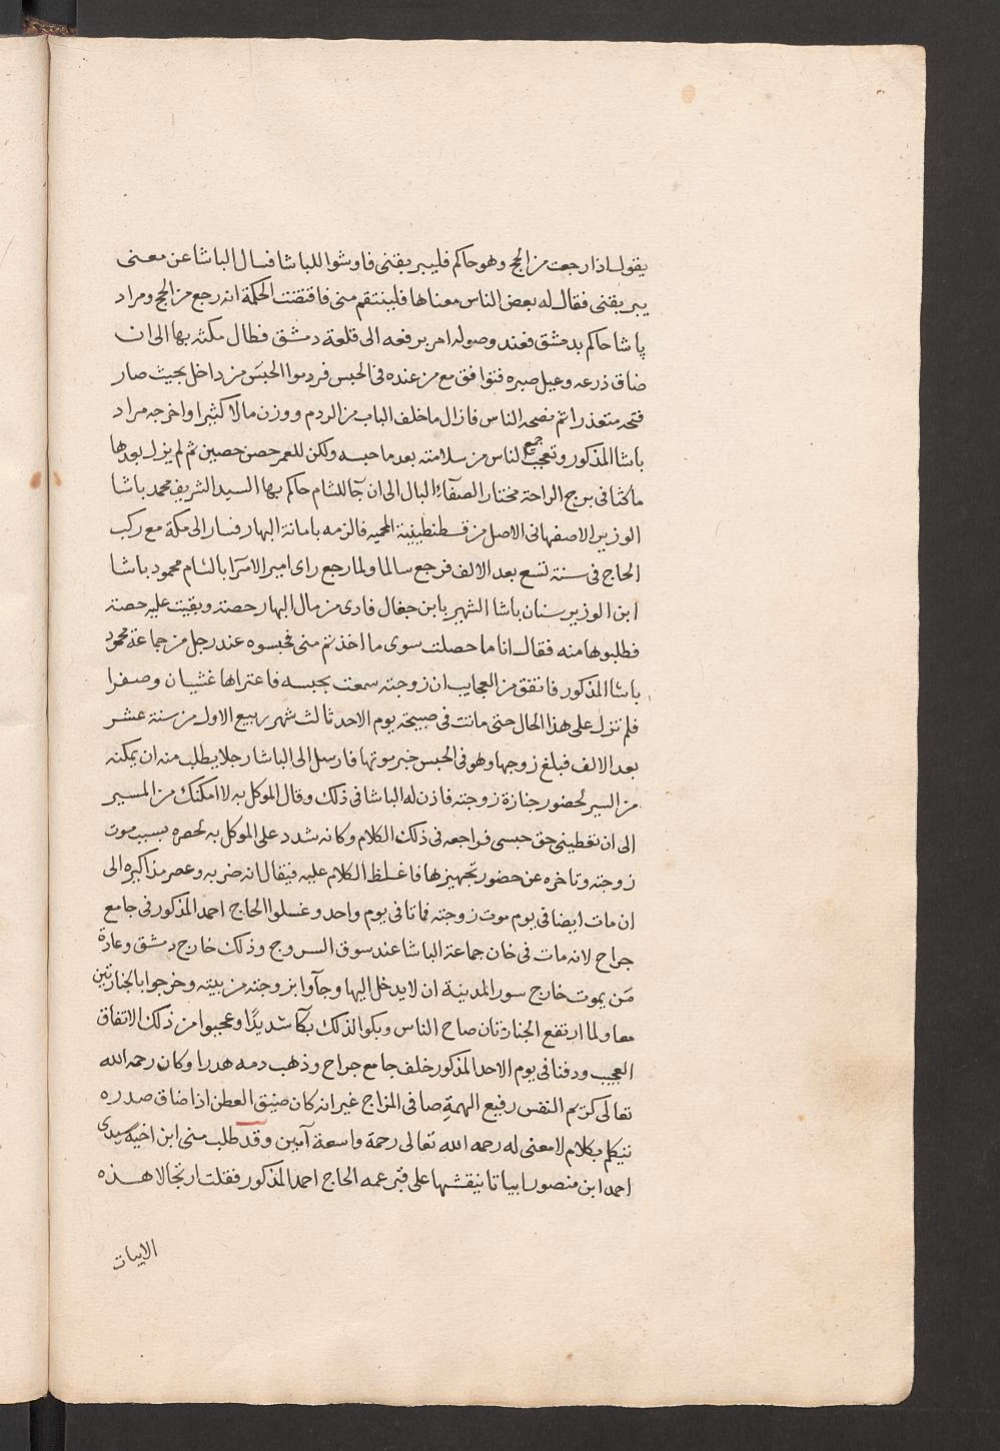 يقول اذا رجعت من الحج وهو حاكم فليبريقنى فاوشوا للباشا فسال الباشا عن معنى
يبريقنى فقال له بعض الناس معناها فلينتقم منى فاقتضت الحكمة انه رجع من الحج ومراد
پاشا حاكم بدمشق فعند وصوله امر برفعه الى قلعة دمشق فطال مكثه بها الى ان
ضاق ذرعه وعيل صبره فتوافق مع من عنده فى الحبس فردموا الحبس من داخل بحيث صار
فتحه متعذرا ثم نصحه الناس فازال ما خلف الباب من الردم ووزن مالا كثيرا واخرجه مراد
باشا المذكور وتعجب جميع الناس من سلامته بعد ما حبسه ولكن للعمر حصن حصين ثم لم يزل بعدها
ماكثا فى برج الراحة مختار الصفآء البال الى ان جآ للشام حاكم بها السيد الشريف محمد باشا
الوزير الاصفهانى الاصل من قسطنطينية المحميه فالزمه بامانة البهار فسار الى مكة مع ركب
الحاج فى سنة تسع بعد الالف فرجع سالما ولما رجع راى امير الامرآ بالشام محمود باشا
ابن الوزير سنان باشا الشهير بابن جغال فادى من مال البهار حصة وبقيت عليه حصة
فطلبوها منه فقال انا ما حصلت سوى ما اخذتم منى فحبسوه عند رجل من جماعة محمود
باشا المذكور فاتفق من العجايب ان زوجته سمعت بحبسه فاعتراها غشيان وصفرا
فلم تزل على هذا الحال حتى ماتت فى صبيحة يوم الاحد ثالث شهر ربيع الاول من سنة عشر
بعد الالف فبلغ زوجها وهو فى الحبس خبر موتها فارسل الى الباشا رجلا يطلب منه ان يمكنه
من السير لحضور جنازة زوجته فاذن له الباشا فى ذلك وقال الموكل به لا امكنك من المسير
الى ان تعطينى حق حبسى فراجعه فى ذلك الكلام وكانه شدد على الموكل به لحصره بسبب موت
زوجته وتاخره عن حضور تجهيزها فاغلظ الكلام عليه فيقال انه ضربه وعصر مذاكيره الى
ان مات ايضا فى يوم موت زوجته فماتا فى يوم واحد وغسلوا الحاج احمد المذكور فى جامع
جراح لانه مات فى خان جماعة الباشا عند سوق السروج وذلك خارج دمشق وعادة
من يموت خارج سور المدينة ان لا يدخل اليها وجآوا بزوجته من بيته وخرجوا بالجنازتين
معا ولما ارتفع الجنازتان صاح الناس وبكوا لذلك بكآ شديدًا وعجبوا من ذلك الاتفاق
العجيب ودفنا فى يوم الاحد المذكور خلف جامع جراح وذهب دمه هدرا وكان رحمه الله
تعالى كريم النفس رفيع الهمة صافى المزاج غير انه كان ضيق العطن اذا ضاق صدره
تيكلم بكلام لا معنى له رحمه الله تعالى رحمة واسعة آمين وقد طلب منى ابن اخيه سيدى
احمد ابن منصور ابياتا ينقشها على قبر عمه الحاج احمد المذكور فقلت ارتجالا هذه
الابيات